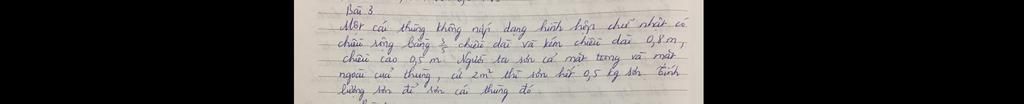 Bài 3
Một cái thùng không nắp dạng hình hộp chữ nhật có
chiều rộng bằng 3/5 chiều dài và kém chiều dài 0,8 m,
chiều cao 0,5 m. Người ta sơn cả mặt trong và mặt
ngoài của thùng, cứ 2m² thì sơn hết 0,5 kg sơn. Tính
lượng sơn để sơn cái thùng đó